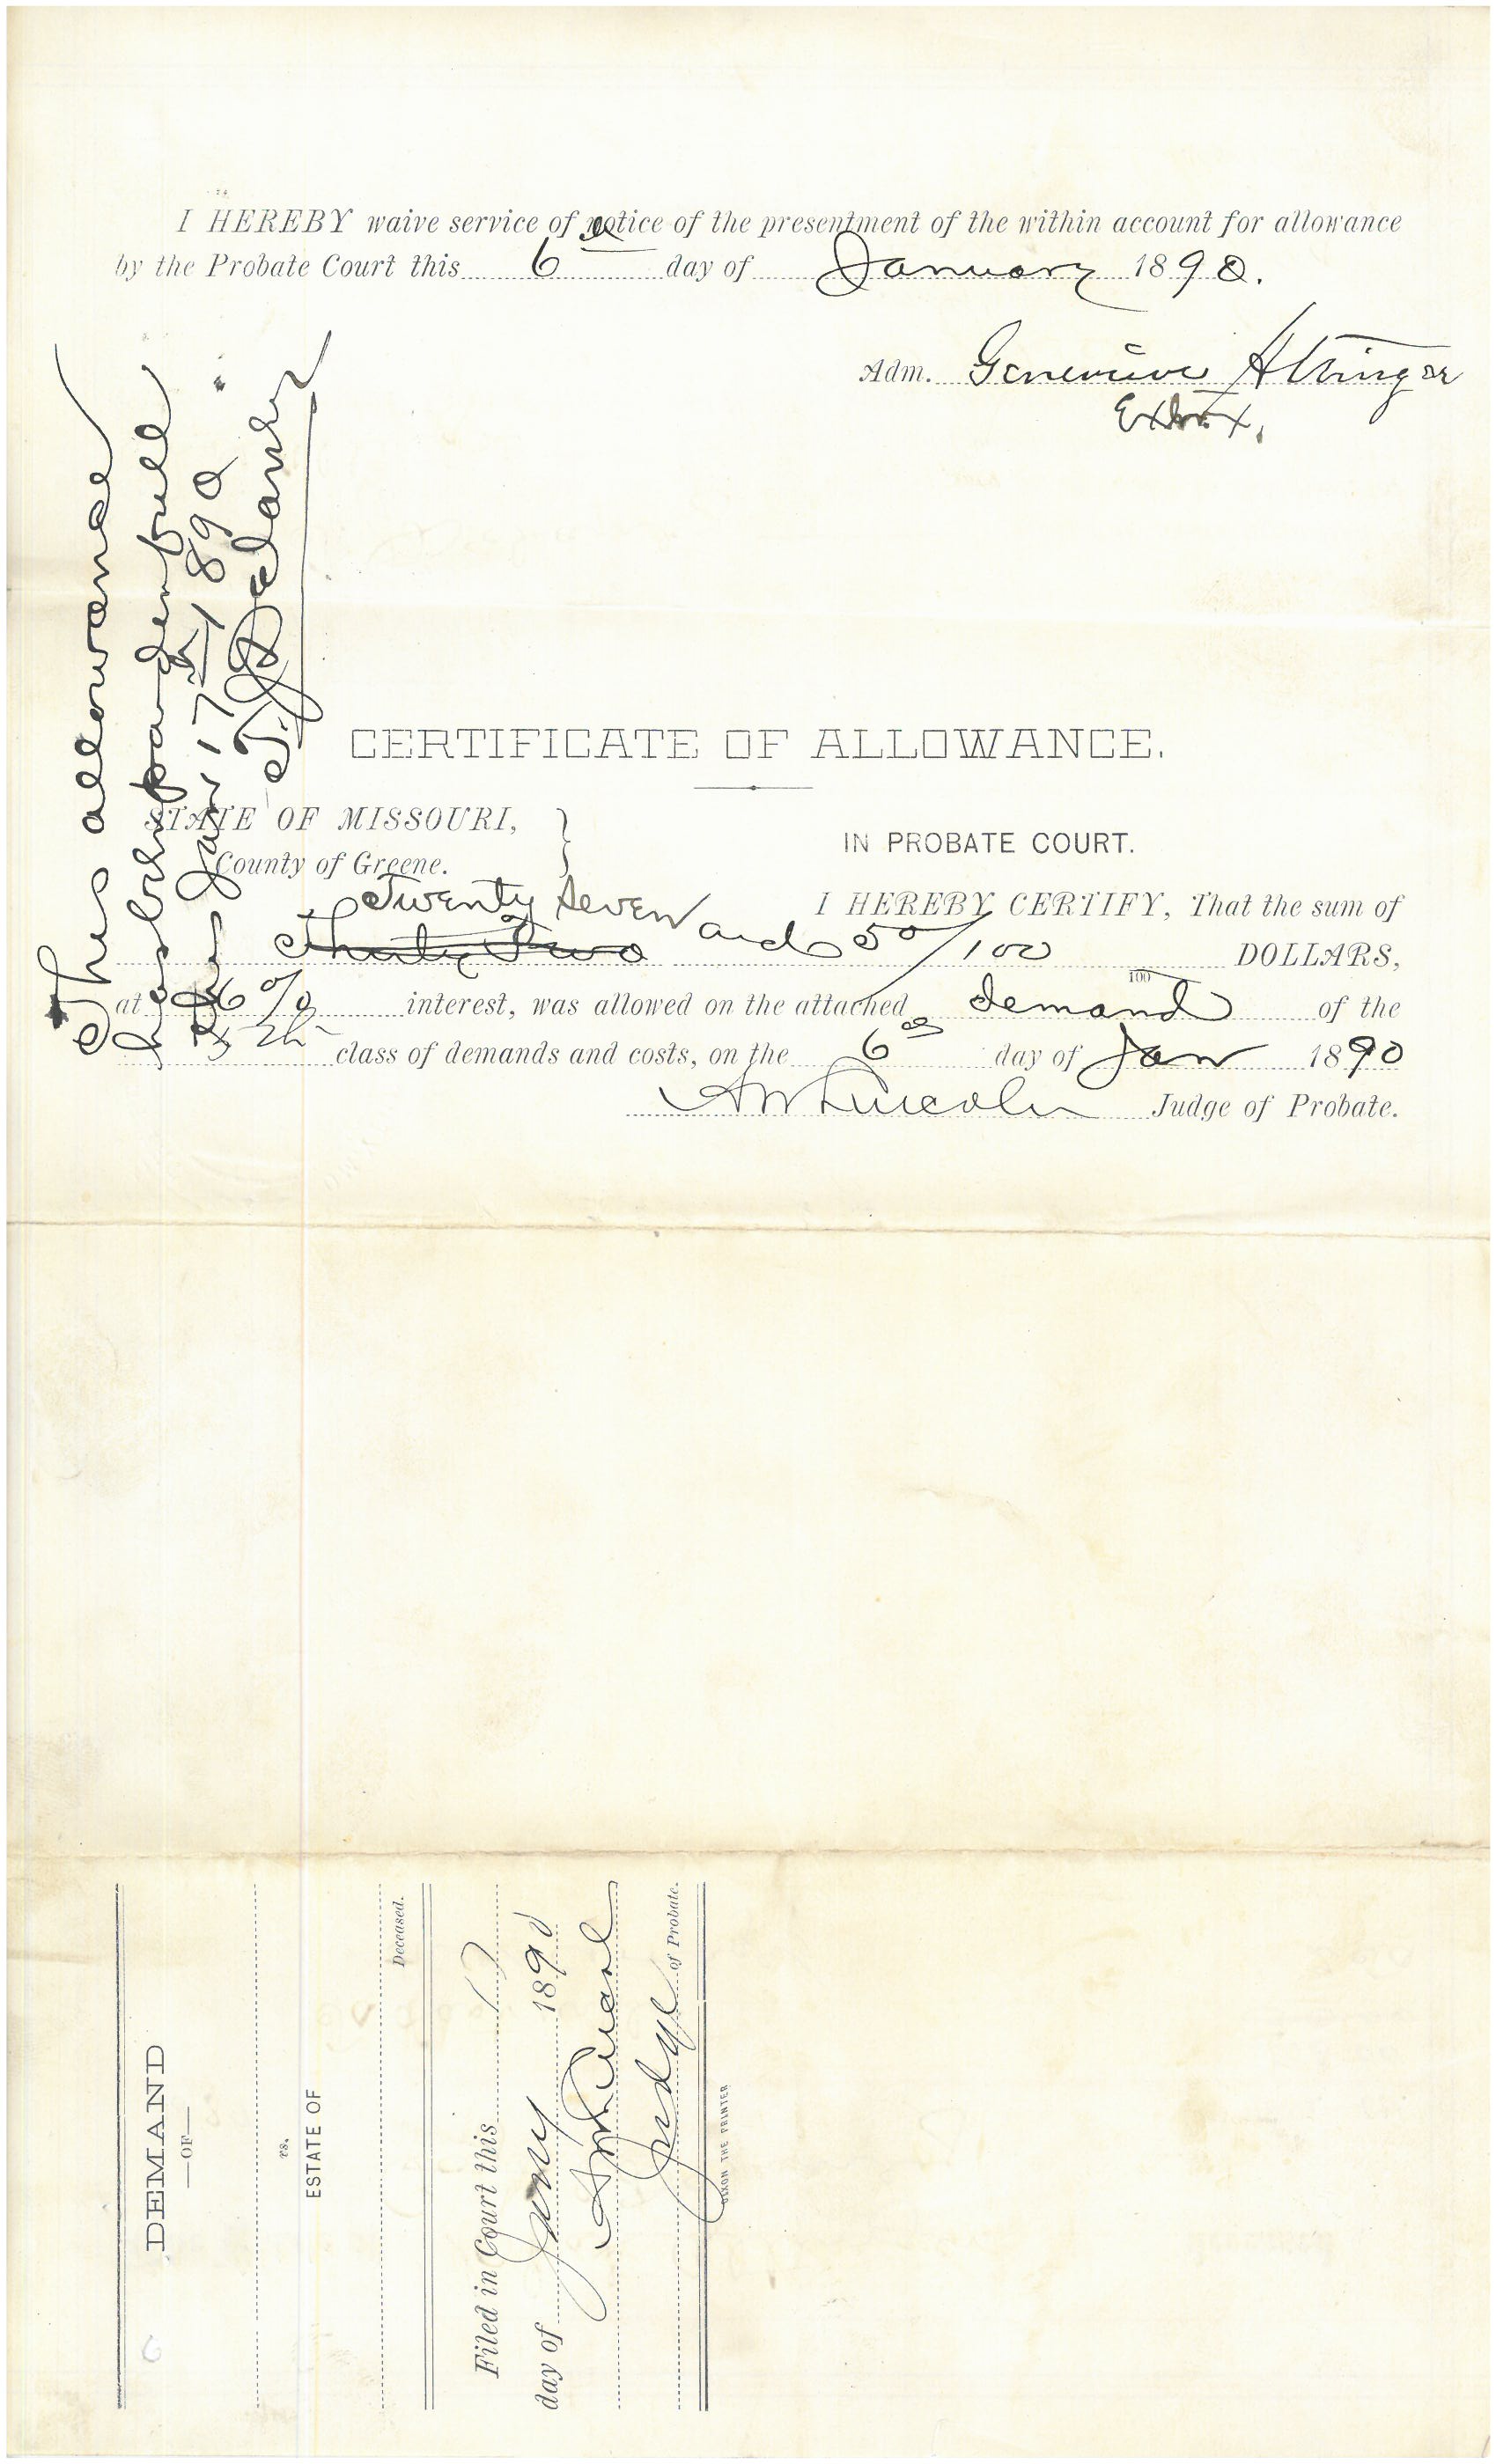 I HEREBY waive service of notice of the presentment of the within account for allowance
by the Probate Court this 6 day of January 1890.
Adm. Genevieve
Extrx.
This allowance
has been paid in full
Jany 17th 1890
CERTIFICATE OF ALLOWANCE.
STATE OF MISSOURI, }
County of Greene.
IN PROBATE COURT.
I HEREBY CERTIFY, That the sum of
Twenty Seven
Thirty Two and 50/100 100 DOLLARS,
at 6% interest, was allowed on the attached demand of the
5th class of demands and costs, on the 6th day of Jan 1890
A W Lincoln Judge of Probate.
DEMAND
—OF—
vs.
ESTATE OF
Deceased.
Filed in Court this
day of Jany 1890
A W Lincoln
Judge of Probate.
DIXON THE PRINTER